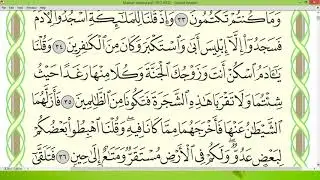 وَمَا كُنتُمْ تَكْتُمُونَ ٣٣ وَإِذْ قُلْنَا لِلْمَلَٰٓئِكَةِ ٱسْجُدُوا۟ لِءَادَمَ
فَسَجَدُوٓا۟ إِلَّآ إِبْلِيسَ أَبَىٰ وَٱسْتَكْبَرَ وَكَانَ مِنَ ٱلْكَٰفِرِينَ ٣٤ وَقُلْنَا
يَٰٓـَٔادَمُ ٱسْكُنْ أَنتَ وَزَوْجُكَ ٱلْجَنَّةَ وَكُلَا مِنْهَا رَغَدًا حَيْثُ
شِئْتُمَا وَلَا تَقْرَبَا هَٰذِهِ ٱلشَّجَرَةَ فَتَكُونَا مِنَ ٱلظَّٰلِمِينَ ٣٥ فَأَزَلَّهُمَا
ٱلشَّيْطَٰنُ عَنْهَا فَأَخْرَجَهُمَا مِمَّا كَانَا فِيهِ ۖ وَقُلْنَا ٱهْبِطُوا۟ بَعْضُكُمْ
لِبَعْضٍ عَدُوٌّ ۖ وَلَكُمْ فِى ٱلْأَرْضِ مُسْتَقَرٌّ وَمَتَٰعٌ إِلَىٰ حِينٍ ٣٦ فَتَلَقَّىٰٓ